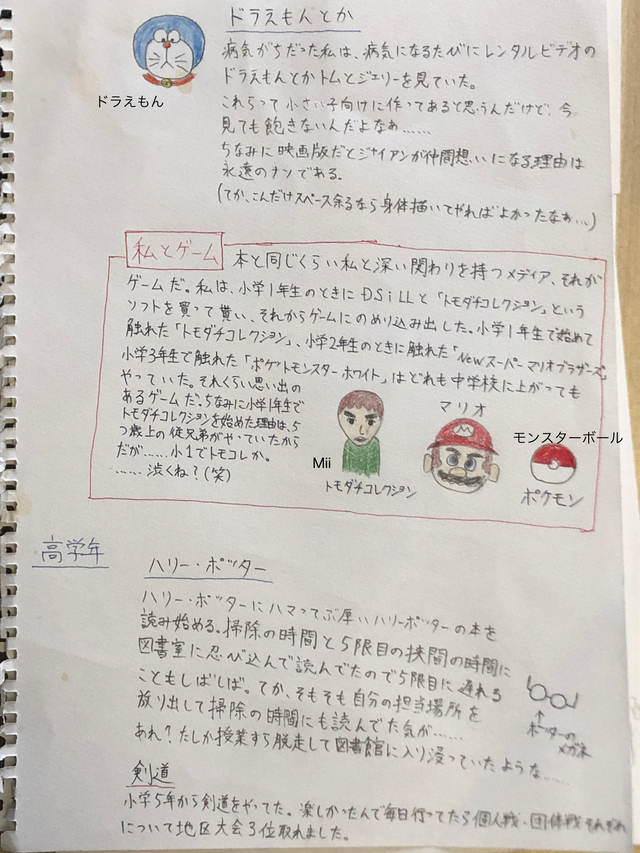 ドラえもんとか
病気がちだった私は、病気になるたびにレンタルビデオの
ドラえもんとかトムとジェリーを見ていた。
これらって小さい子向けに作ってあると思うんだけど、今
見ても飽きないんだよなぁ……
ちなみに映画版だとジャイアンが仲間想いになる理由は
永遠のナゾである。
(てか、こんだけスペース余るなら身体描いてやればよかったなぁ…)
ドラえもん
私とゲーム
本と同じくらい私と深い関わりを持つメディア、それが
ゲームだ。私は、小学1年生のときにDSiLLと「トモダチコレクション」という
ソフトを買って貰い、それからゲームにのめり込み出した。小学1年生で始めて
触れた「トモダチコレクション」、小学2年生のときに触れた「Newスーパーマリオブラザーズ」
小学3年生で触れた「ポケットモンスターホワイト」はどれも中学校に上がっても
やっていた。それくらい思い出の
あるゲームだ。ちなみに小学1年生で
トモダチコレクションを始めた理由は、5
つ歳上の従兄弟がやっていたから
だが……小1でトモコレか。
……渋くね?(笑)
Mii
トモダチコレクション
マリオ
モンスターボール
ポケモン
高学年
ハリー・ポッター
ハリー・ポッターにハマってぶ厚いハリーポッターの本を
読み始める。掃除の時間と5限目の狭間の時間に
図書室に忍び込んで読んでたので5限目に遅れる
こともしばしば。てか、そもそも自分の担当場所を
放り出して掃除の時間にも読んでた気が……
あれ?たしか授業すら脱走して図書館に入り浸っていたような……
↑
ポッターの
メガネ
剣道
小学5年から剣道をやってた。楽しかったんで毎日行ってたら個人戦・団体戦それぞれ
について地区大会3位取れました。